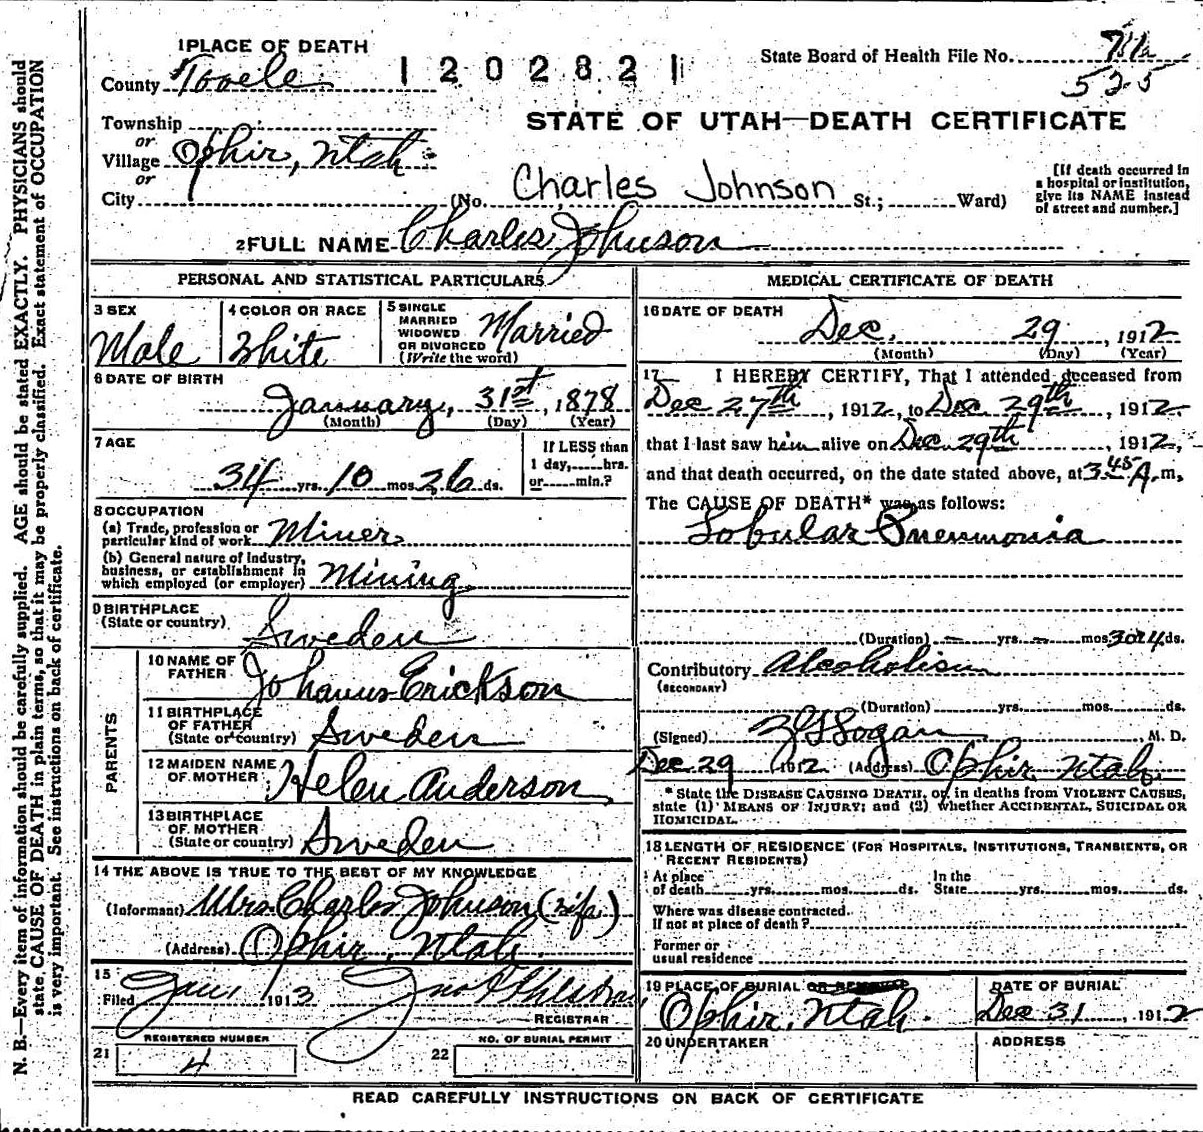 N. B.—Every item of information should be carefully supplied. AGE should be stated EXACTLY. PHYSICIANS should
state CAUSE OF DEATH in plain terms, so that it may be properly classified. Exact statement of OCCUPATION
is very important. See instructions on back of certificate.
1 PLACE OF DEATH
County Tooele
1202821
State Board of Health File No.
525
Township
or
Village Ophir, Utah
or
City
STATE OF UTAH—DEATH CERTIFICATE
(No. Charles Johnson St.; Ward)
[If death occurred in
a hospital or institution,
give its NAME instead
of street and number.]
2 FULL NAME Charles Johnson
PERSONAL AND STATISTICAL PARTICULARS
3 SEX
Male
4 COLOR OR RACE
White
5 SINGLE
MARRIED
WIDOWED
OR DIVORCED
(Write the word)
Married
6 DATE OF BIRTH
January, 31st, 1878
(Month) (Day) (Year)
7 AGE
34 yrs. 10 mos. 26 ds.
If LESS than
1 day, hrs.
or min.?
8 OCCUPATION
(a) Trade, profession or
particular kind of work Miner
(b) General nature of industry,
business, or establishment in
which employed (or employer) Mining
9 BIRTHPLACE
(State or country)
Sweden
PARENTS
10 NAME OF
FATHER
Johanus Erickson
11 BIRTHPLACE
OF FATHER
(State or country) Sweden
12 MAIDEN NAME
OF MOTHER Helen Anderson
13 BIRTHPLACE
OF MOTHER
(State or country) Sweden
14 THE ABOVE IS TRUE TO THE BEST OF MY KNOWLEDGE
(Informant) Mrs Charles Johnson (wife)
(Address) Ophir, Utah
15
Filed Jan 1 1913
REGISTRAR
21
REGISTERED NUMBER
4
22
NO. OF BURIAL PERMIT
MEDICAL CERTIFICATE OF DEATH
16 DATE OF DEATH
Dec. 29, 1912
(Month) (Day) (Year)
17 I HEREBY CERTIFY, That I attended deceased from
Dec 27th, 1912, to Dec 29th, 1912.
that I last saw him alive on Dec 29th, 1912,
and that death occurred, on the date stated above, at 3.45 A.m.
The CAUSE OF DEATH* was as follows:
Lobular Pneumonia
(Duration) — yrs. — mos. 3 or 4 ds.
Contributory Alcoholism
(SECONDARY)
(Duration) yrs. mos. ds.
(Signed) M. D.
Dec 29 1912 (Address) Ophir, Utah.
* State the DISEASE CAUSING DEATH, or, in deaths from VIOLENT CAUSES,
state (1) MEANS OF INJURY; and (2) whether ACCIDENTAL, SUICIDAL OR
HOMICIDAL.
18 LENGTH OF RESIDENCE (FOR HOSPITALS, INSTITUTIONS, TRANSIENTS, OR
RECENT RESIDENTS)
At place
of death yrs. mos. ds.
In the
State yrs. mos. ds.
Where was disease contracted.
If not at place of death?
Former or
usual residence
19 PLACE OF BURIAL OR REMOVAL
Ophir, Utah.
DATE OF BURIAL
Dec 31, 1912
20 UNDERTAKER
ADDRESS
READ CAREFULLY INSTRUCTIONS ON BACK OF CERTIFICATE